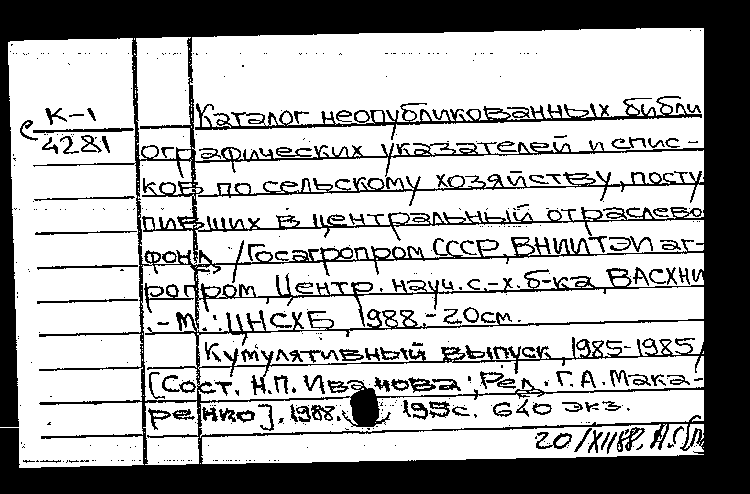 К-1
е
4281
Каталог неопубликованных библи
ографических указателей и спис-
ков по сельскому хозяйству, посту
пивших в центральный отраслево
фонд / Госагропром СССР, ВНИИТЭИ аг-
ропром, Центр. науч. с.-х. б-ка, ВАСХНИ
.- М. : ЦНСХБ, 1988.- 20см.
Кумулятивный выпуск, 1985-1985/
[Сост. Н.П. Иванова; Ред. Г.А. Мака-
ренко]. 1988. 195с. 640 экз.
20/XII88.